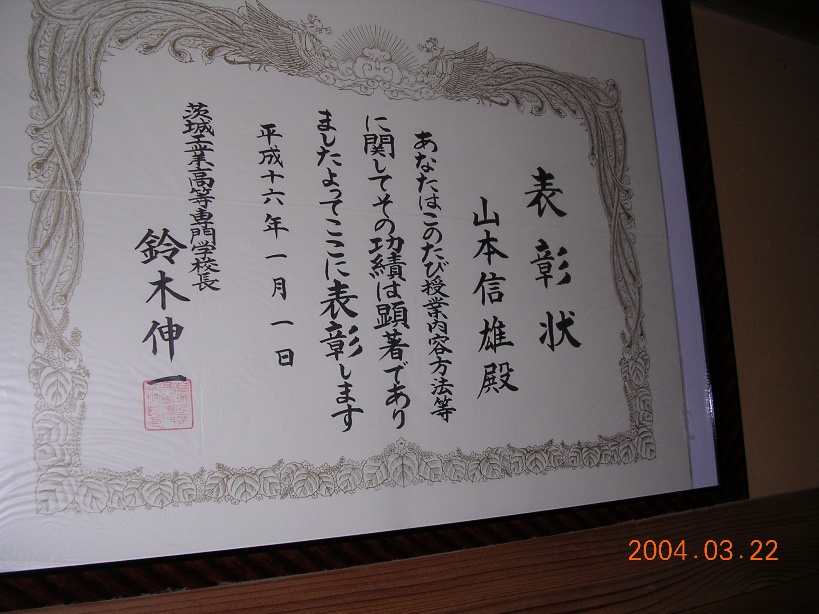 表彰状
山本信雄殿
あなたはこのたび授業内容方法等
に関してその功績は顕著であり
ましたよってここに表彰します
平成十六年一月一日
茨城工業高等専門学校長
鈴木伸一
2004.03.22